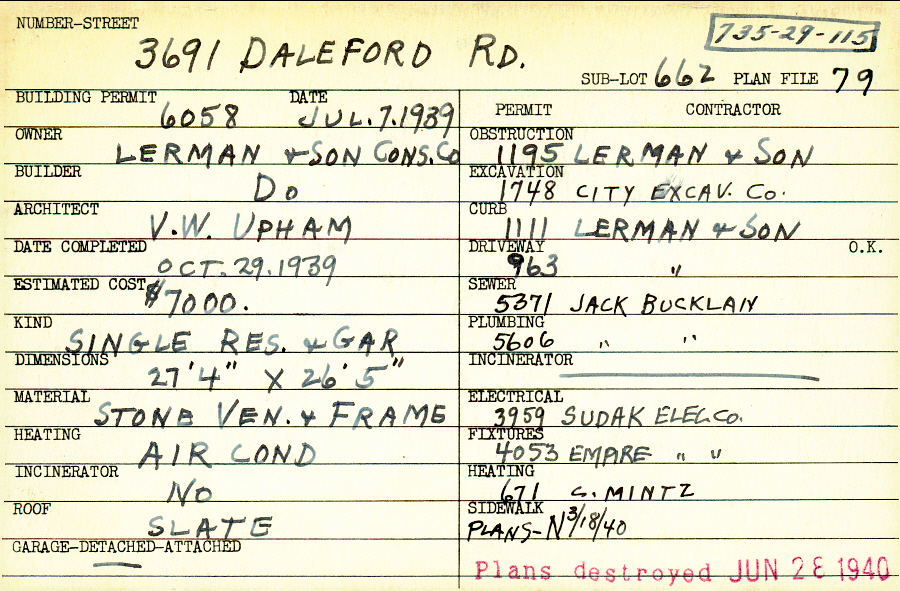 NUMBER-STREET
3691 DALEFORD RD.
735-29-115
SUB-LOT 662 PLAN FILE 79
BUILDING PERMIT DATE
6058 JUL.7.1939
OWNER
LERMAN & SON CONS.CO
BUILDER
DO
ARCHITECT
V.W. UPHAM
DATE COMPLETED
OCT.29.1939
ESTIMATED COST
$7000.
KIND
SINGLE RES. & GAR
DIMENSIONS
27'4" X 26'5"
MATERIAL
STONE VEN. & FRAME
HEATING
AIR COND
INCINERATOR
NO
ROOF
SLATE
GARAGE-DETACHED-ATTACHED
PERMIT CONTRACTOR
OBSTRUCTION
1195 LERMAN & SON
EXCAVATION
1748 CITY EXCAV. CO.
CURB
1111 LERMAN & SON
DRIVEWAY O.K.
963 "
SEWER
5371 JACK BUCKLAN
PLUMBING
5606 " "
INCINERATOR
ELECTRICAL
3959 SUDAK ELEC.CO.
FIXTURES
4053 EMPIRE " "
HEATING
671 S. MINTZ
SIDEWALK
PLANS-N 3/18/40
Plans destroyed JUN 28 1940